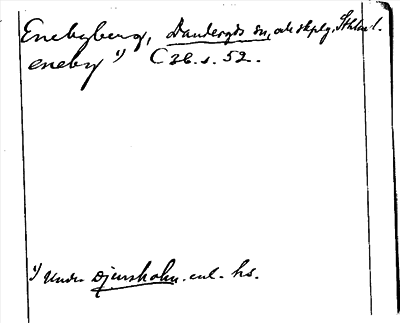 Enebyberg, Danderyds sn, och skplg, Sthlm l.
eneby 1) C 26. s. 52.
1) Under Djursholm. enl. hs.